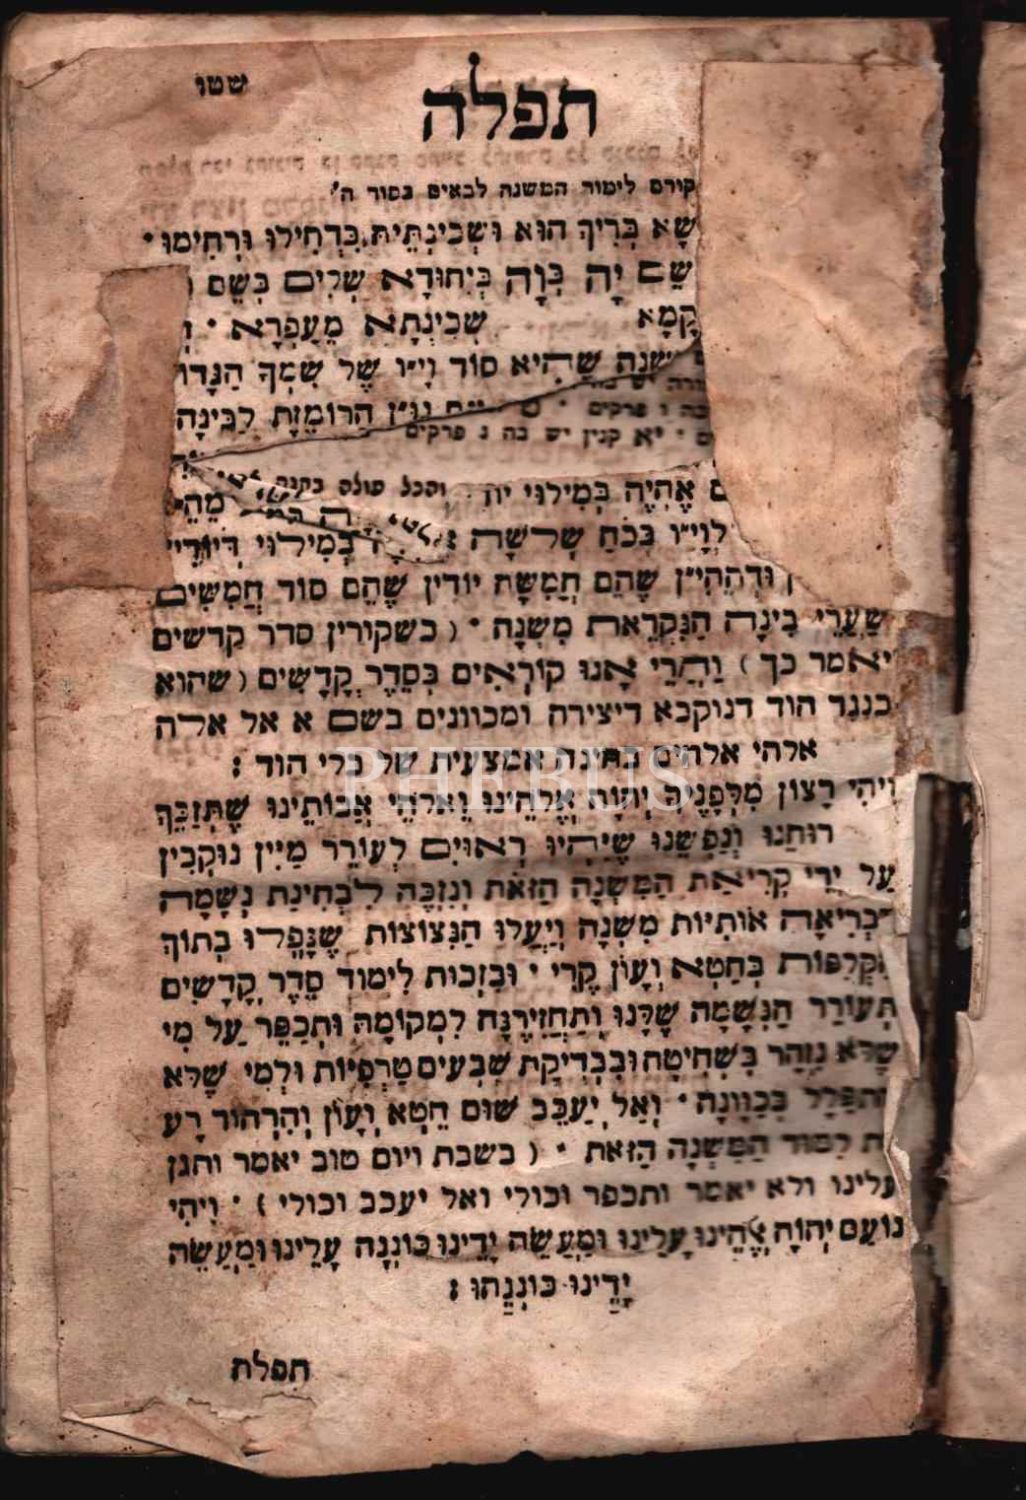 שטו
תפלה
קודם לימוד המשנה לבאים בסוד ה׳
שָׁא בְּרִיךְ הוּא וּשְׁכִינְתֵּיהּ בִּדְחִילוּ וּרְחִימוּ •
שֵׁם יָהּ בְּוָה בְּיִחוּדָא שְׁלִים בְּשֵׁם
קָמָא שְׁכִינְתָּא מֵעַפְרָא •
שֶׁהִיא סוֹד וָי״ו שֶׁל שִׁמְךָ הַגָּדוֹ
נו״ן הָרוֹמֶזֶת לַבִּינָה
בה ו פרקים
• יא קנין יש בה ג פרקים
והכל סולם
אֶהְיֶה בְּמִילוּי
לְוָי״ו בְּכֹחַ שָׁרְשָׁהּ בְּמִילוּי דְיוּדִי״
וּדְהֵהִי״ן שֶׁהֵם חֲמִשָּׁה יוּדִין שֶׁהֵם סוֹד חֲמִשִּׁים
שַׁעֲרֵי בִינָה הַנִּקְרֵאת מִשְׁנָה • (כשקורין סדר קדשים
יאמר כך) וַהֲרֵי אָנוּ קוֹרְאִים בְּסֵדֶר קָדָשִׁים (שהוא
כנגד הוד דנוקבא דיצירה ומכוונים בשם א אל אלה
אלהי אלהים בחינה אמצעית של כלי הוד :
וִיהִי רָצוֹן מִלְּפָנֶיךָ יְהֹוָה אֱלֹהֵינוּ וֵאלֹהֵי אֲבוֹתֵינוּ שֶׁתְּזַכֵּךְ
רוּחֵנוּ וְנַפְשֵׁנוּ שֶׁיִּהְיוּ רְאוּיִם לְעוֹרֵר מַיִין נוּקְבִין
עַל יְדֵי קְרִיאַת הַמִּשְׁנָה הַזֹּאת וְנִזְכֶּה לִבְחִינַת נְשָׁמָה
בְּרִיאָה אוֹתִיּוֹת מִשְׁנָה וְיַעֲלוּ הַנִּצוֹצוֹת שֶׁנָּפְלוּ בְּתוֹךְ
קְלִפּוֹת בְּחֵטְא וְעָוֹן קֶרִי • וּבִזְכוּת לִימוּד סֵדֶר קָדָשִׁים
תְּעוֹרַר הַנְּשָׁמָה שָׁלָּנוּ וְתַחֲזִירֶנָּה לִמְקוֹמָהּ וּתְכַפֵּר עַל מִי
שֶׁלֹּא נִזְהַר בִּשְׁחִיטָה וּבִבְדִיקַת שִׁבְעִים טְרֵפִיּוֹת וּלְמִי שֶׁלֹּא
הִתְפַּלֵּל בְּכַוָּונָה • וְאַל יְעַכֵּב שׁוּם חֵטְא וְעָוֹן וְהִרְהוּר רָע
לִמּוּד הַמִּשְׁנָה הַזֹּאת • (בשבת ויום טוב יאמר ותגן
עלינו ולא יאמר ותכפר וכולי ואל יעכב וכולי) • וִיהִי
נוֹעַם יְהֹוָה אֱהֵינוּ עָלֵינוּ וּמַעֲשֵׂה יָדֵינוּ כּוֹנְנָה עָלֵינוּ וּמַעֲשֵׂה
יָדֵינוּ כּוֹנְנֵהוּ :
תפלת